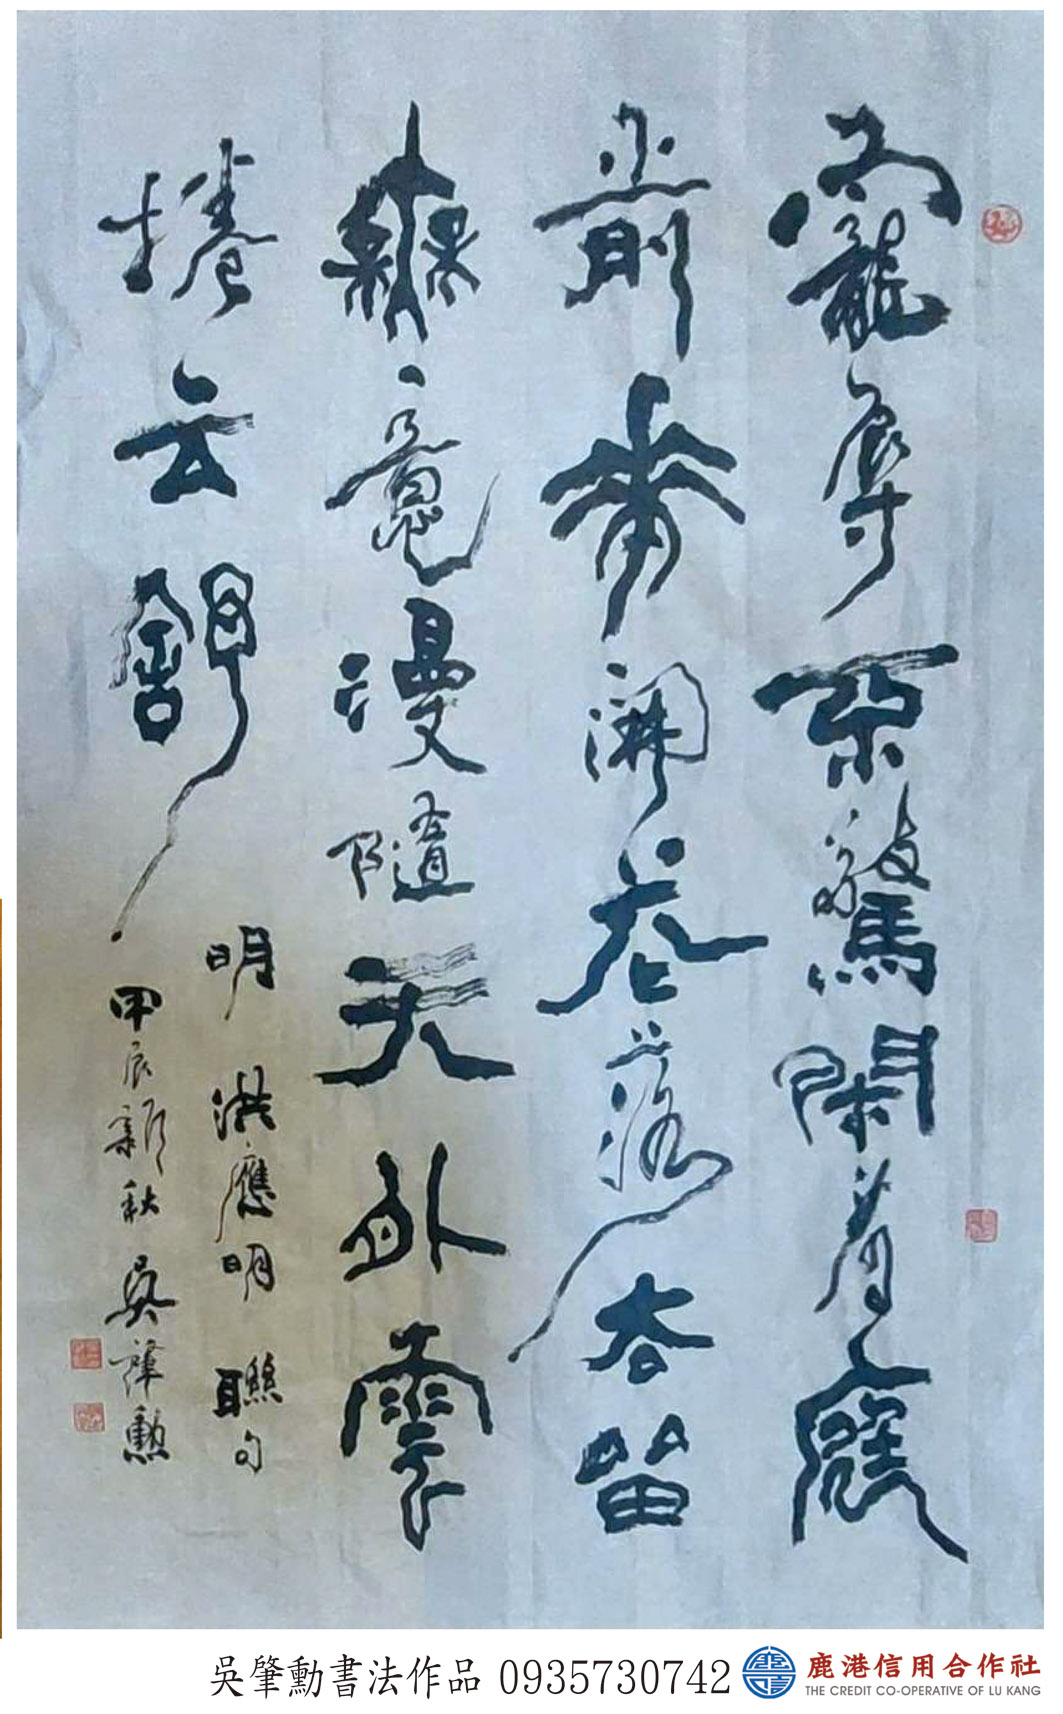 寵辱不驚閑看庭
前花開花落去留
無意漫隨天外雲
捲云舒
明 洪應明 聯句
甲辰新秋 吳肇勳
吳肇勳書法作品 0935730742
鹿港信用合作社
THE CREDIT CO-OPERATIVE OF LU KANG